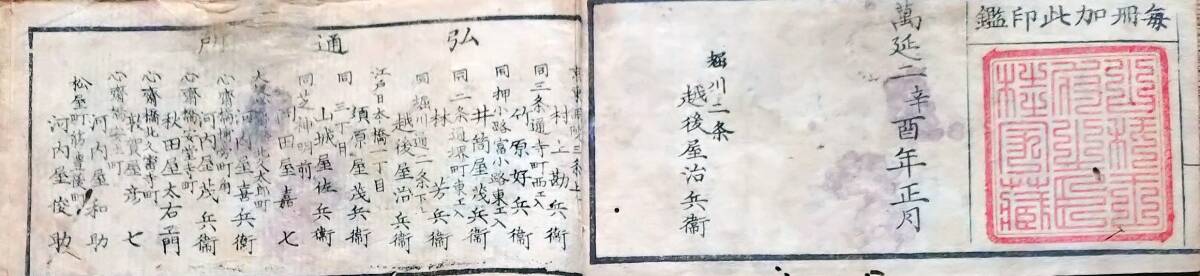 每冊加此印鑑
萬延二辛酉年正月
堀川二条
越後屋治兵衞
弘通所
村上勘兵衞
同三条通寺町西エ入
竹原好兵衞
同押小路富小路東エ入
井筒屋茂兵衞
同二条通堺町東エ入
林芳兵衞
同堀川通二条下
越後屋治兵衞
江戸日本橋一丁目
須原屋茂兵衞
同二丁目
山城屋佐兵衞
同芝神明前
岡田屋嘉七
太郎町
河内屋喜兵衞
心齋橋
河内屋茂兵衞
心齋橋安堂寺町
秋田屋太右エ門
心齋橋北久寳寺町
敦賀屋彦七
心齋橋安土町
河内屋和助
松屋町筋
河内屋俊助